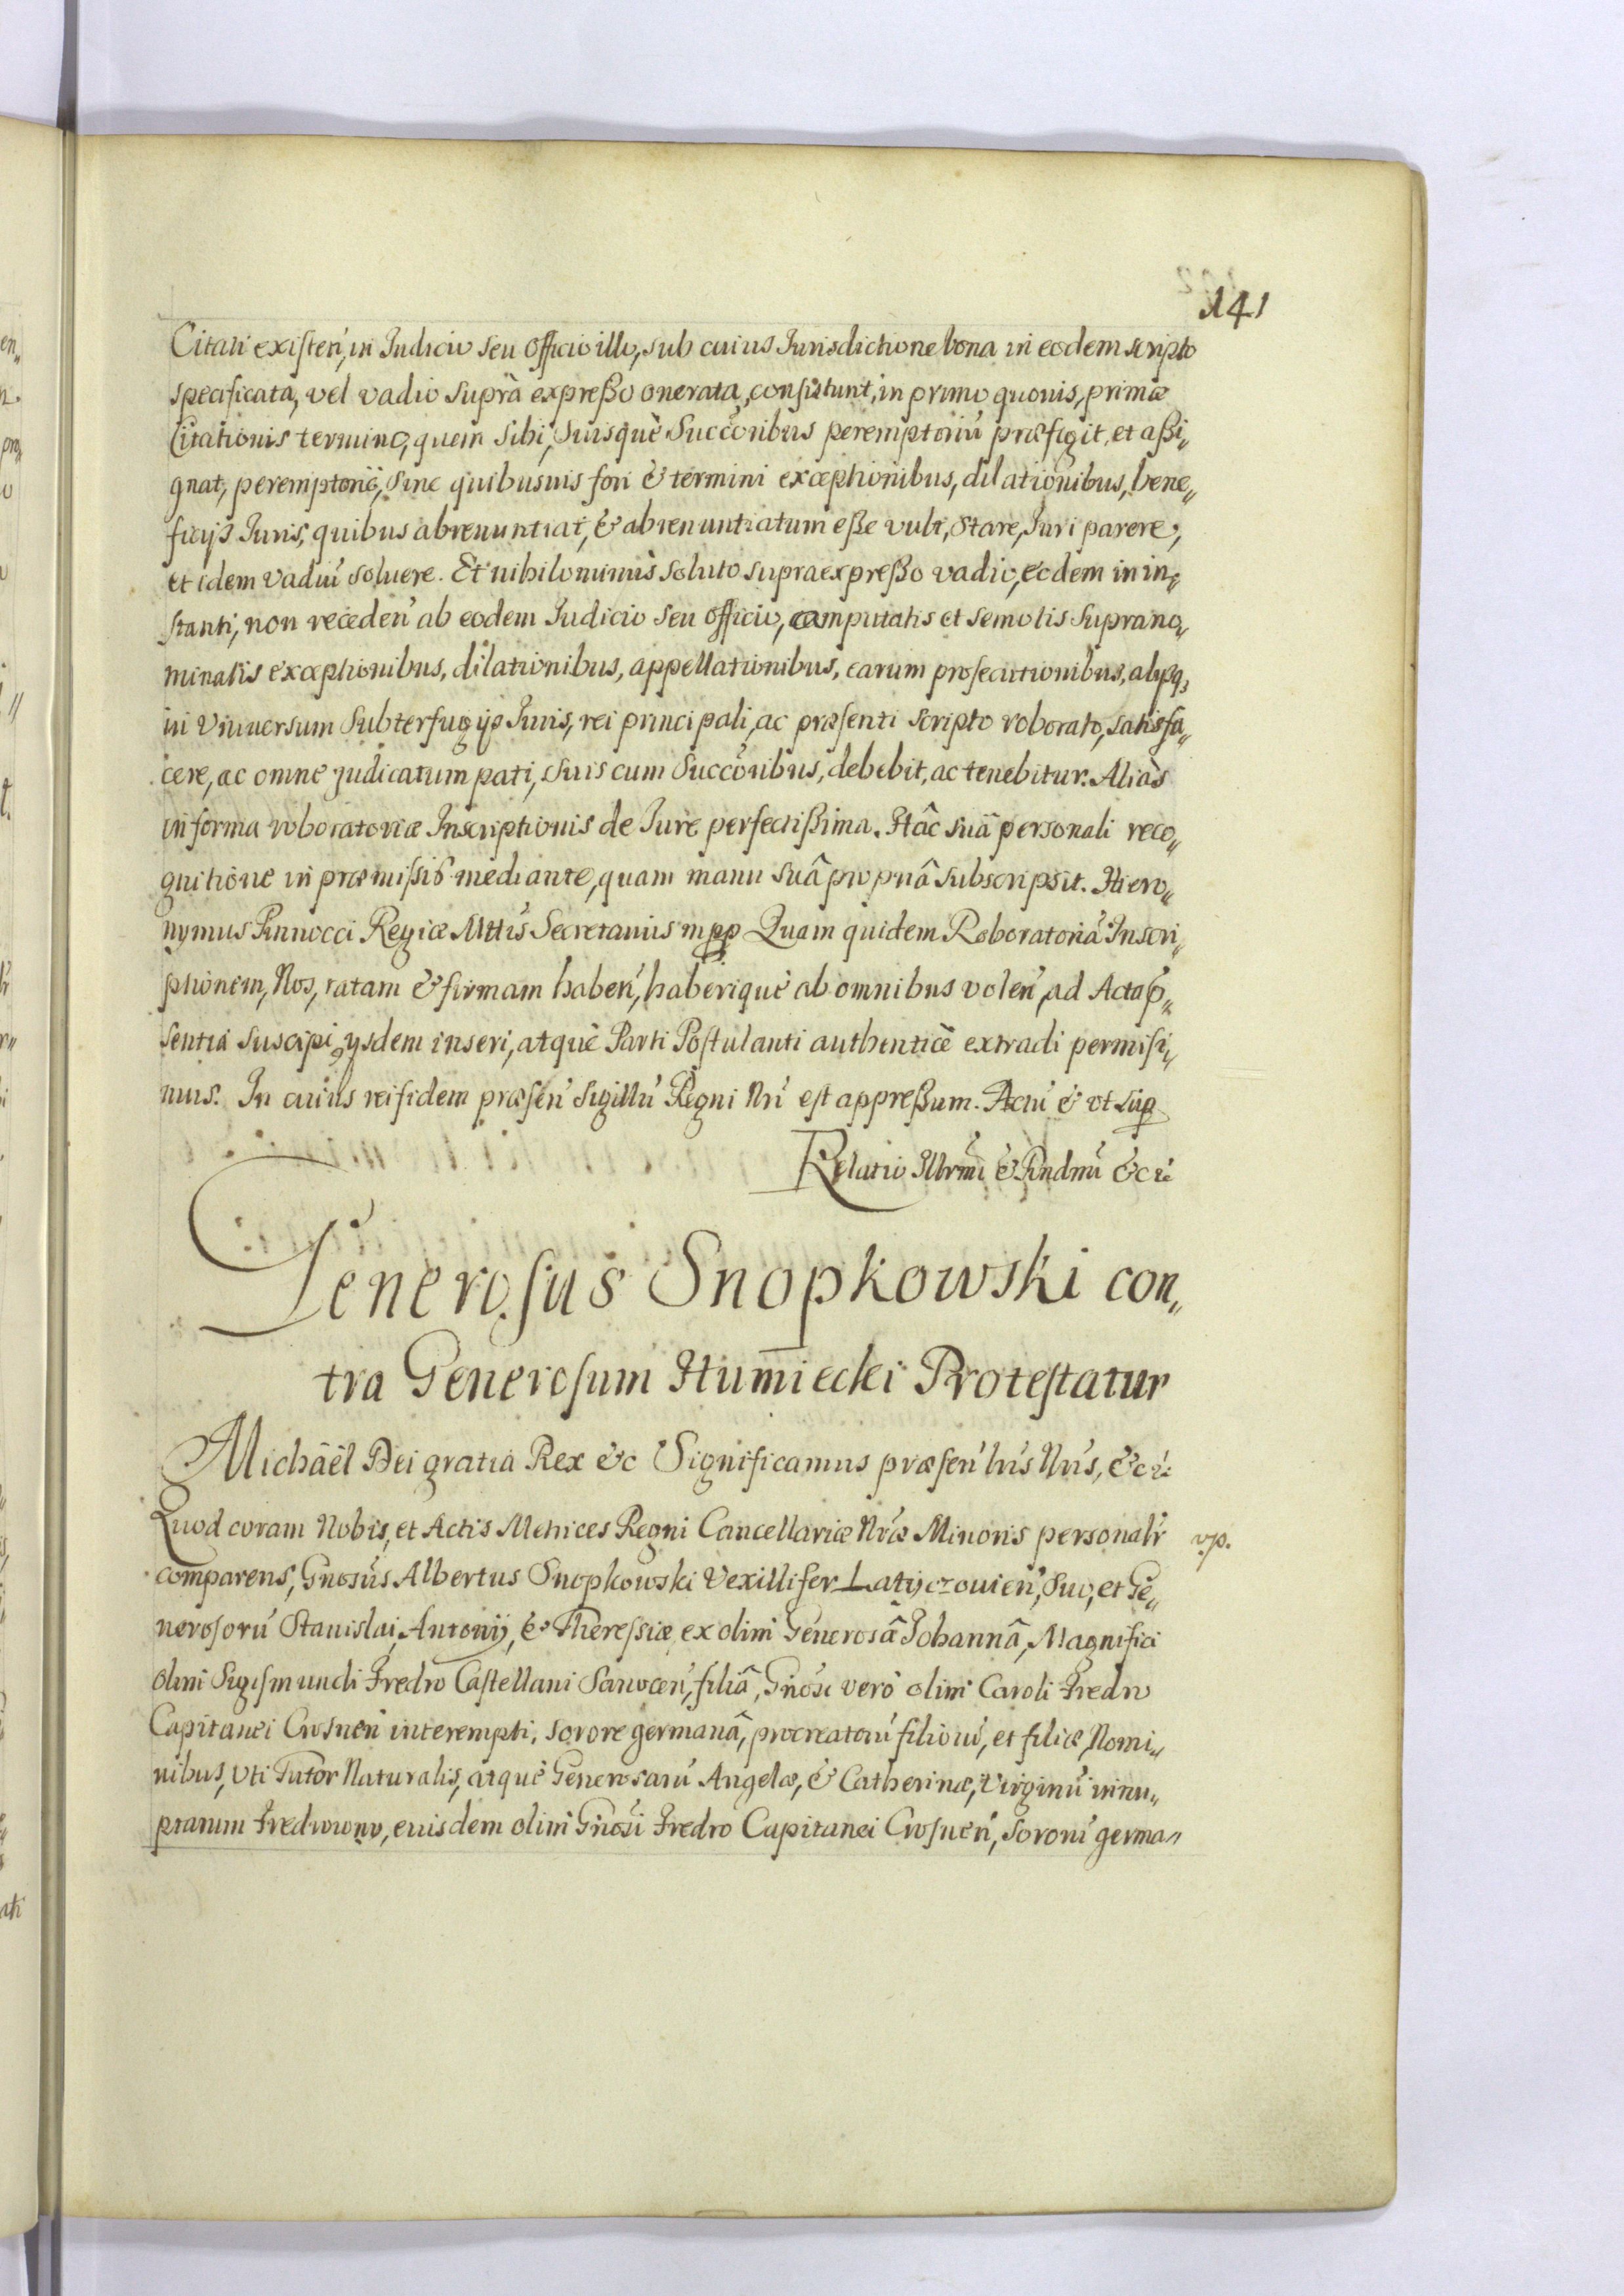 141
Citati existeñ, in Judicio seu Officio illo, sub cuius Jurisdictione bona in eodem scripto
specificata, vel vadio suprà expreßo onerata, consistunt, in primo quouis, primæ
Citationis termino, quem sibi, suisquè Succoribus peremptoriũ præfigit, et aßi„
gnat, peremptoriè, sine quibusuis fori & termini exceptionibus, dilationibus, bene„
ficijs Juris, quibus abrenuntiat, & abrenuntiatum eße vult, Stare, Juri parere,
et idem vadiũ soluere. Et nihilominùs soluto supraexpreßo vadio, eodem in in„
stanti, non recedeñ ab eodem Judicio seu Officio, amputatis et semotis suprano„
minatis exceptionibus, dilationibus, appellationibus, earum prosecutionibus, alijsq3
in Vniuersum Subterfugijs Juris, rei principali, ac præsenti scripto roborato, satisfa„
cere, ac omne judicatum pati, suis cum Succoribus, debebit, ac tenebitur. Aliàs
in forma roboratoriæ Inscriptionis de Jure perfectißima. Hâc suâ personali reco„
gnitione in præmissis mediante, quam manu suâ propriâ subscripsit. Hiero„
nymus Pinnocci Regiæ Mttis Secretarius mpp Quam quidem Roboratoriã Inscri„
ptionem, Nos, ratam & firmam habeñ, haberiquè ab omnibus voleñ, ad Acta p„
sentia suscipi, ijsdem inseri, atquè Parti Postulanti authenticè extradi permisi„
mus. In cuius rei fidem præseñ Sigillũ Regni Nrĩ est appreßum. Actũ & vt sup
Relatio Illrmi & Rndmi &c ec
Generosus Snopkowski con„
tra Generosum Humiecki Protestatur
Michaël Dei gratia Rex &c Significamus præseñ lrĩs Nrĩs, &c ec
Quod coram Nobis, et Actis Metrices Regni Cancellariæ Nræ Minoris personalr
vp.
comparens, Gnosus Albertus Snopkowski Vexillifer Latyczouieñ, Suo, et Ge„
nerosorũ Stanislai, Antonij, & Theressiæ, ex olim Generosâ Johannâ, Magnifici
olim Sigismundi Fredro Castellani Sanoceñ, filiâ, Gnosi verò olim Caroli Fredro
Capitanei Crosneñ interempti, sorore germanâ, procreatorũ filiorũ, et filiæ, Nomi„
nibus, vti Tutor Naturalis, atquè Generosarũ Angelæ, & Catherinæ, Virginũ innu„
ptarum Fredrowno, eiusdem olim Gnosi Fredro Capitanei Crosneñ, Sororũ germa„